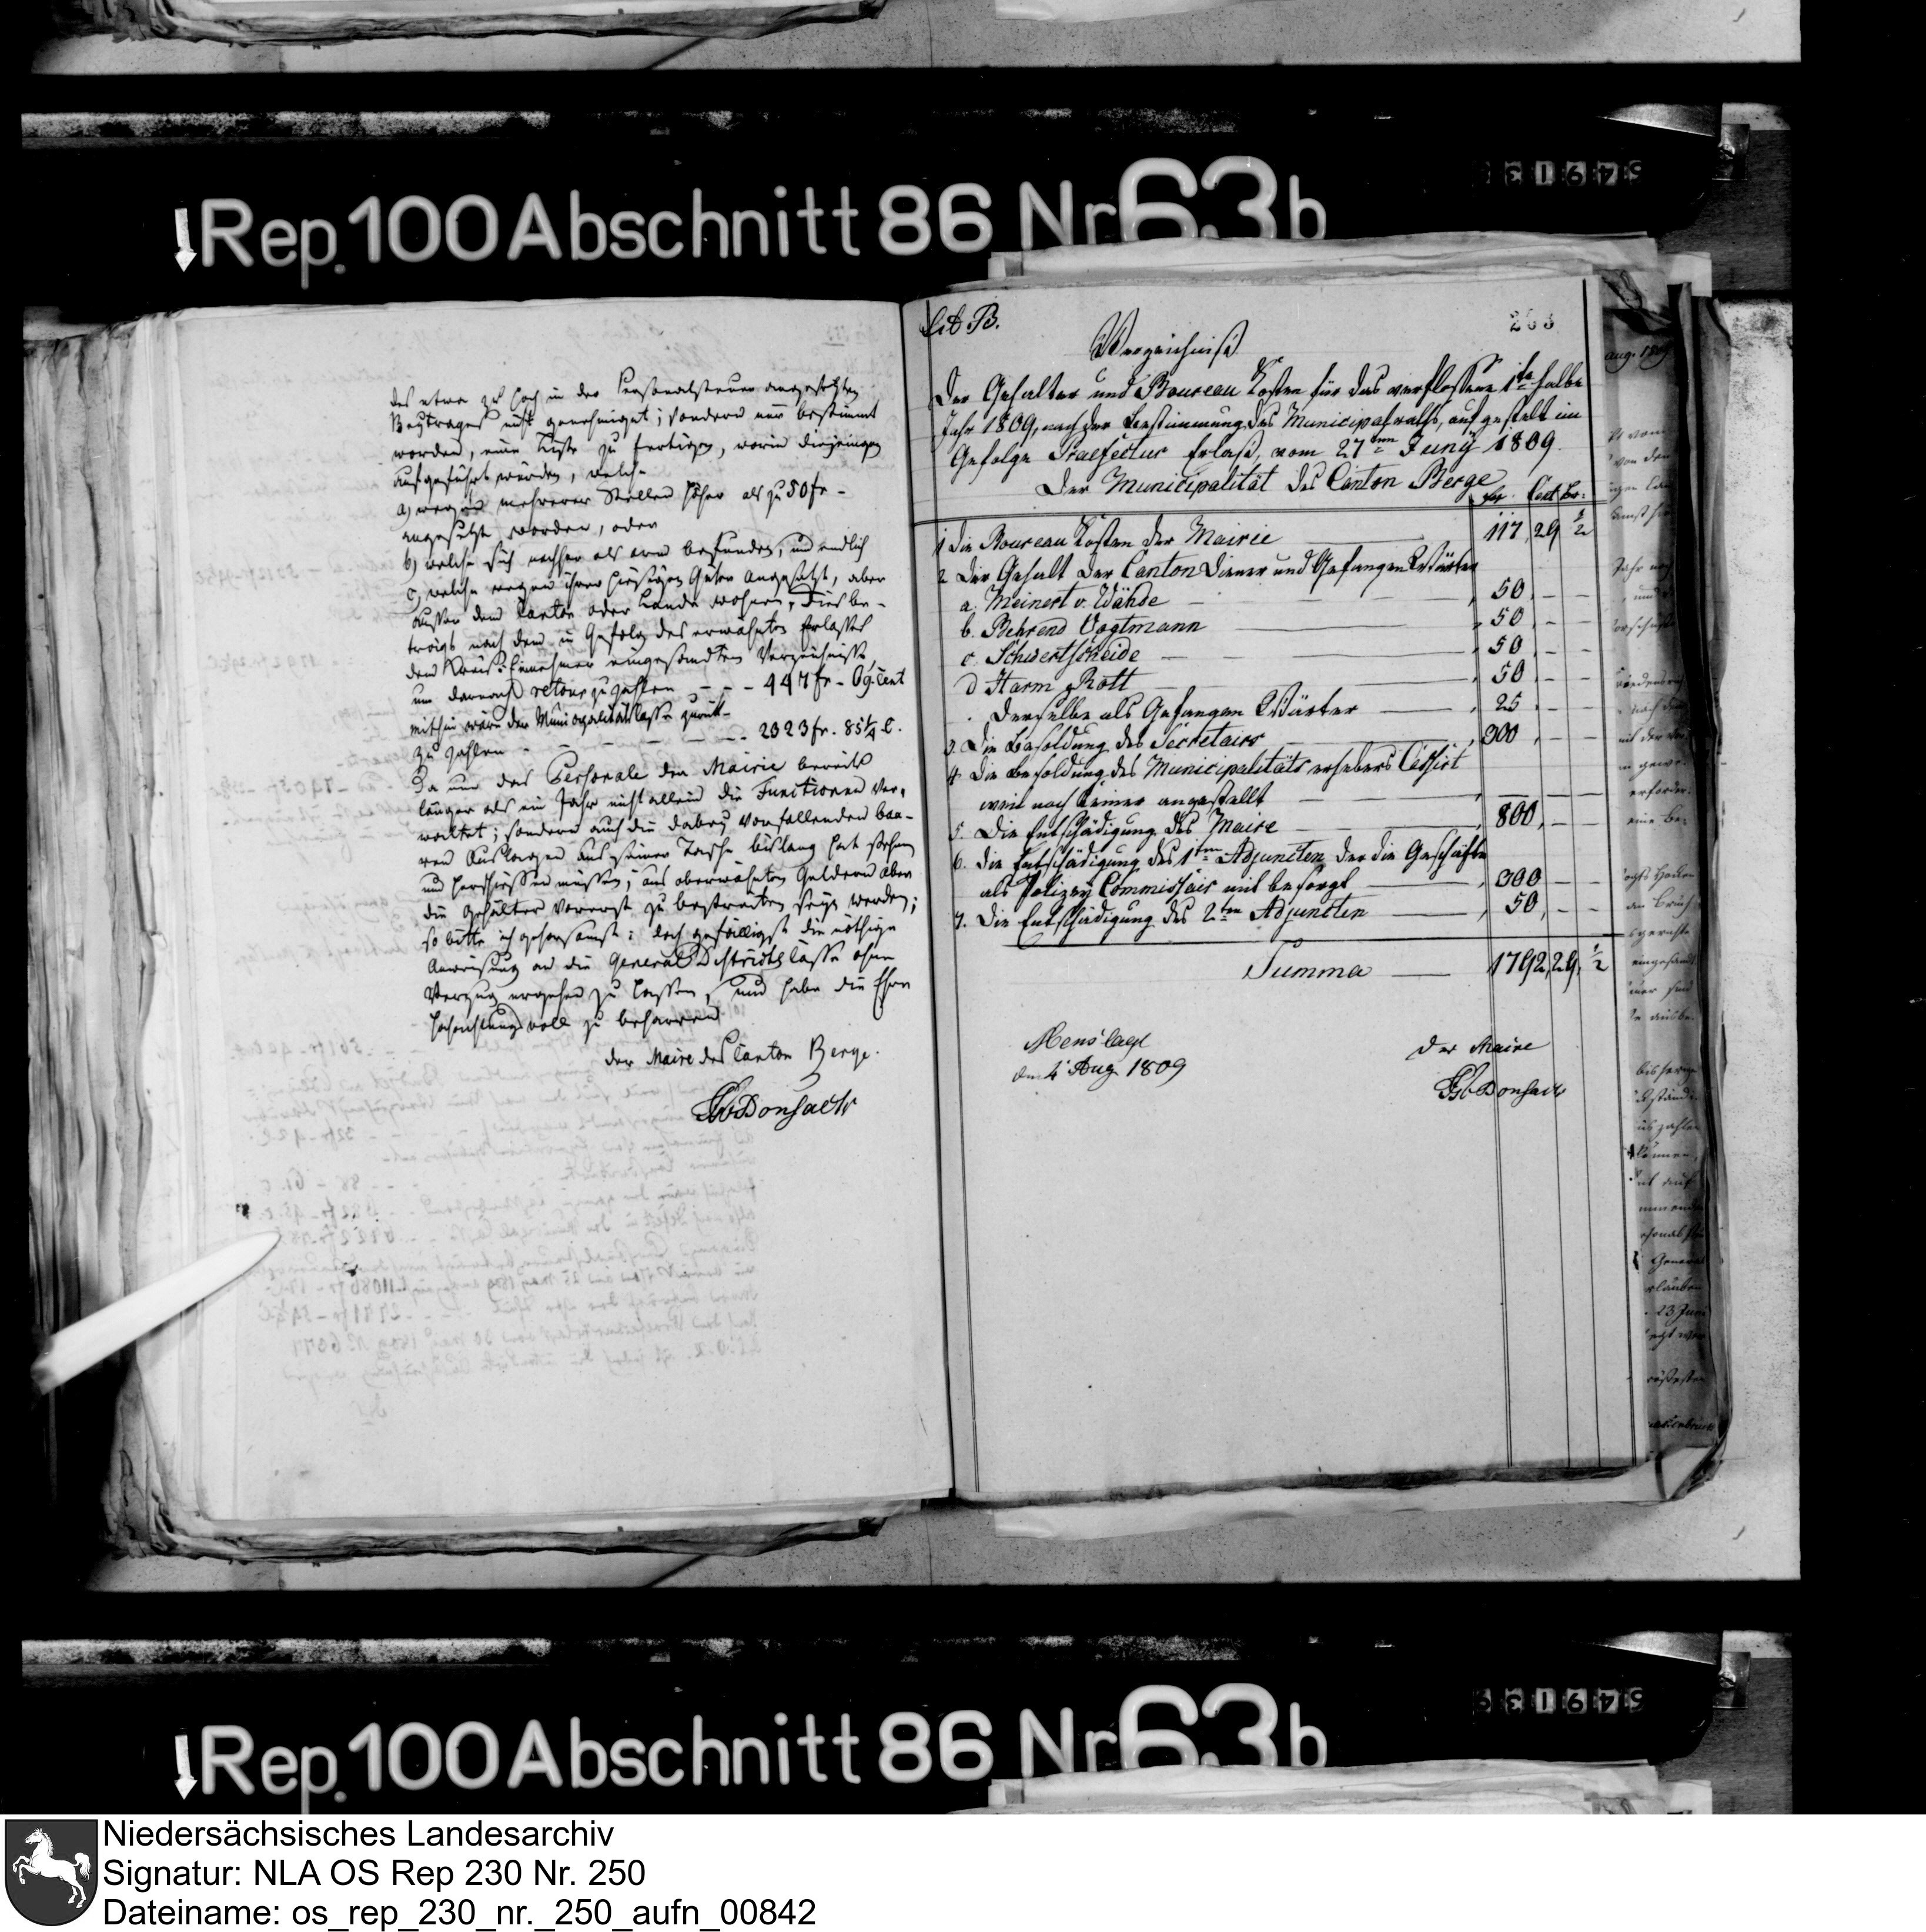 ↓Rep.100Abschnitt 86 Nr63b
des etwa zu hoch in der Personalsteuer angesetzten
Beytrages nicht genehmiget; sondern nur bestimmt
worden, eine Liste zu fertigen, worin diejenigen
aufgeführt würden, welche
a) wegen mehrerer Stellen höher als zu 50 fr -
angesetzt worden, oder
b) welche sich nachher als arm befunden, und endlich
c) welche wegen ihrer hiesigen Güter angesetzt, aber
ausser dem Canton oder Lande wohnen, dies be-
trägt nach dem in Gefolg des erwähnten Erlasses
dem Kreis Einnehmer eingesandten Verzeichnisse
um darauf retour zu zahlen - - - 447 fr - 09 Cent
mithin wäre der Municipalitätscasse zurück
zu zahlen - - - - 2023 fr. 85 1/4 C.
Da nun das Personale der Mairie bereits
länger als ein Jahr nicht allein die Functionen ver-
waltet; sondern auch die dabey vorfallenden baa-
ren Auslagen aus seiner Tasche bislang hat stehen
und herschiessen müssen; aus oberwähnten Geldern aber
die Gehälter vorerst zu bestreiten seyn werden;
so bitte ich gehorsamst: doch gefälligst die nöthige
Anweisung an die General Districts Casse ohne
Verzug ergehen zu lassen, und habe die Ehre
hochachtungsvoll zu beharren
der Maire des Canton Berge.
Lit B.
263
Verzeichniß
Der Gehalter und Boureau Kosten für das verflossene 1te halbe
Jahr 1809, nach der Bestimmung des Municipalraths, aufgestelt im
Gefolge Praefectur Erlaß, vom 27ten Juny 1809.
Der Municipalität des Canton Berge
fr. Cent
1 Die Boureau Kosten der Mairie — 117 29 1/2
2 Der Gehalt der Canton Diener und Gefangen Wärter
a. Meinert v. Wähde — 50 - -
b. Behrend Vogtmann — 50 - -
c. Schwertscheide — 50 - -
d Harm Rott — 50 - -
. Derselbe als Gefangen Wärter — 25 - -
3. Die Besoldung des Secretairs — 300 - -
4 Die Besoldung des Municipalitäts erhebers Cessirt
weil noch keiner angestellt — - - -
5. Die Entschädigung des Maire — 800 - -
6. Die Entschädigung des 1ten Adjuncten der die Geschäfte
als Polizey Commissair mit besorgt — 300 - -
7. Die Entschädigung des 2ten Adjuncten — 50 - -
Summa — 1792, 29, 1/2
Menslage
den 4 Aug 1809
Der Maire
↓Rep.100Abschnitt 86 Nr63b
Niedersächsisches Landesarchiv
Signatur: NLA OS Rep 230 Nr. 250
Dateiname: os_rep_230_nr._250_aufn_00842